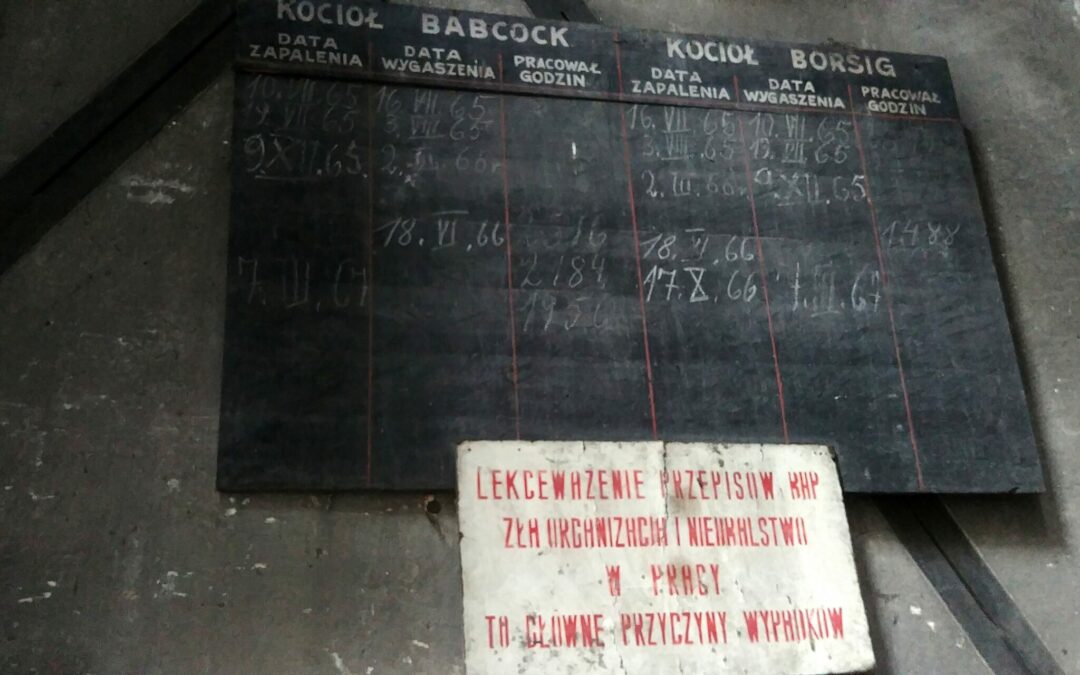 KOCIOŁ BABCOCK
DATA ZAPALENIA
DATA WYGASZENIA
PRACOWAŁ GODZIN
10. VII. 65 16. VII. 65
19. VII. 65 3. VIII. 65
9. XII. 65. 2. III. 66r
18. VI. 66
7. III. 67 2184
KOCIOŁ BORSIG
DATA ZAPALENIA
DATA WYGASZENIA
PRACOWAŁ GODZIN
16. VII. 65 19. VII. 65
3. VIII. 65
2. III. 66r 9. XII. 65.
18. VI. 66 1488
17. X. 66 7. III. 67
LEKCEWAŻENIE PRZEPISÓW BHP
ZŁA ORGANIZACJA I NIEDBALSTWO
W PRACY
TO GŁÓWNE PRZYCZYNY WYPADKÓW